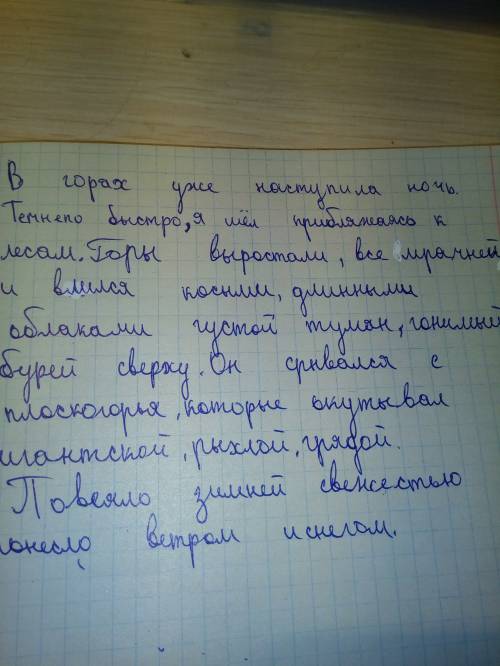 В горах уже наступила ночь.
Темнело быстро, я шёл приближаясь к
лесам. Горы выростали, все мрачней
и влился косыми, длинными
облаками густой туман, гонимый
бурей сверху. Он срывался с
плоскогорья, которые окутывал
игантской, рыхлой, грядой.
Повеяло зимней свежестью
онесло ветром и снегом.